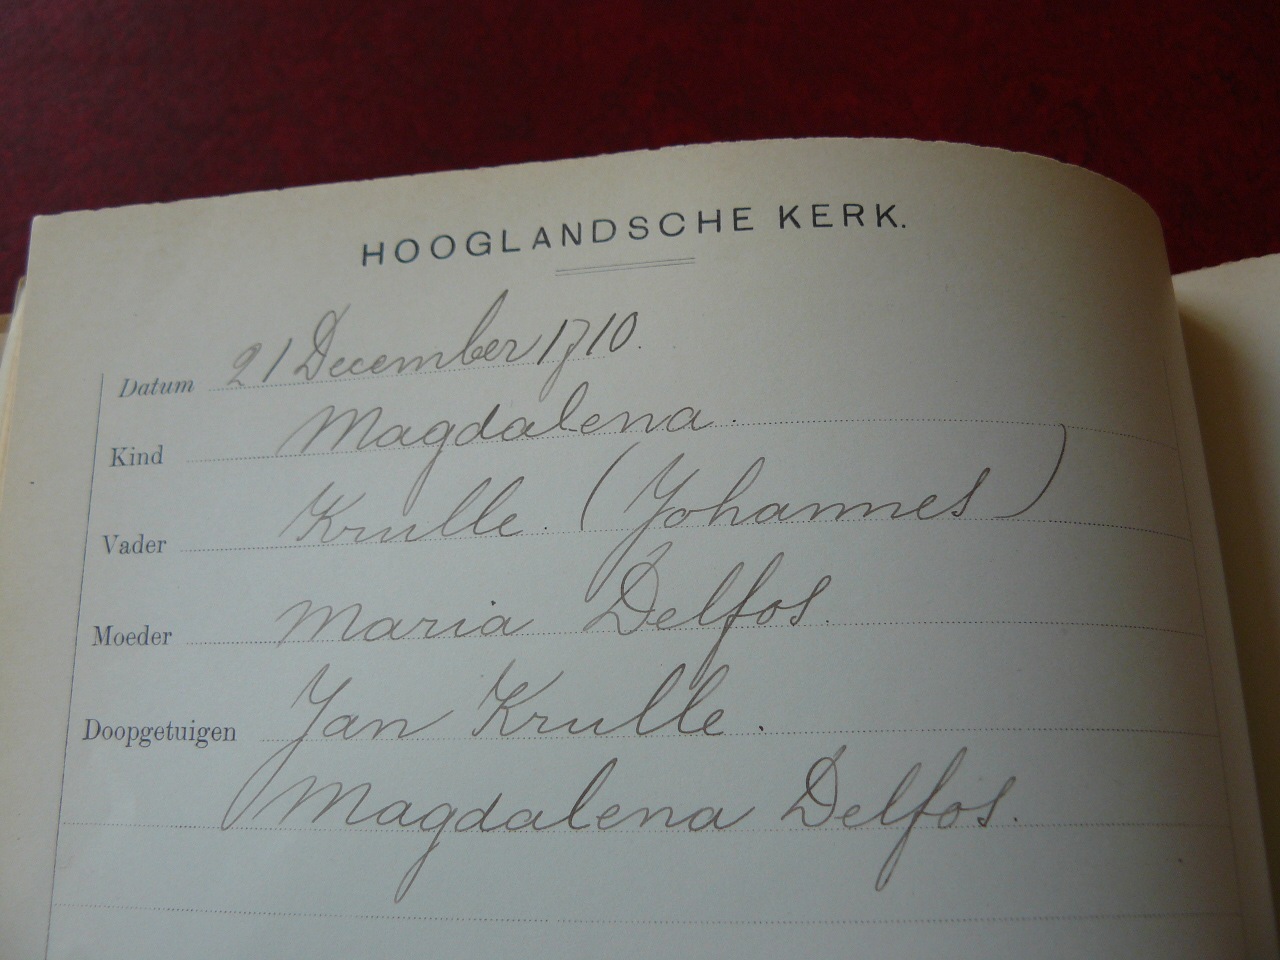 HOOGLANDSCHE KERK.
Datum 21 December 1710.
Kind Magdalena.
Vader Krulle. (Johannes)
Moeder Maria Delfos.
Doopgetuigen Jan Krulle.
Magdalena Delfos.